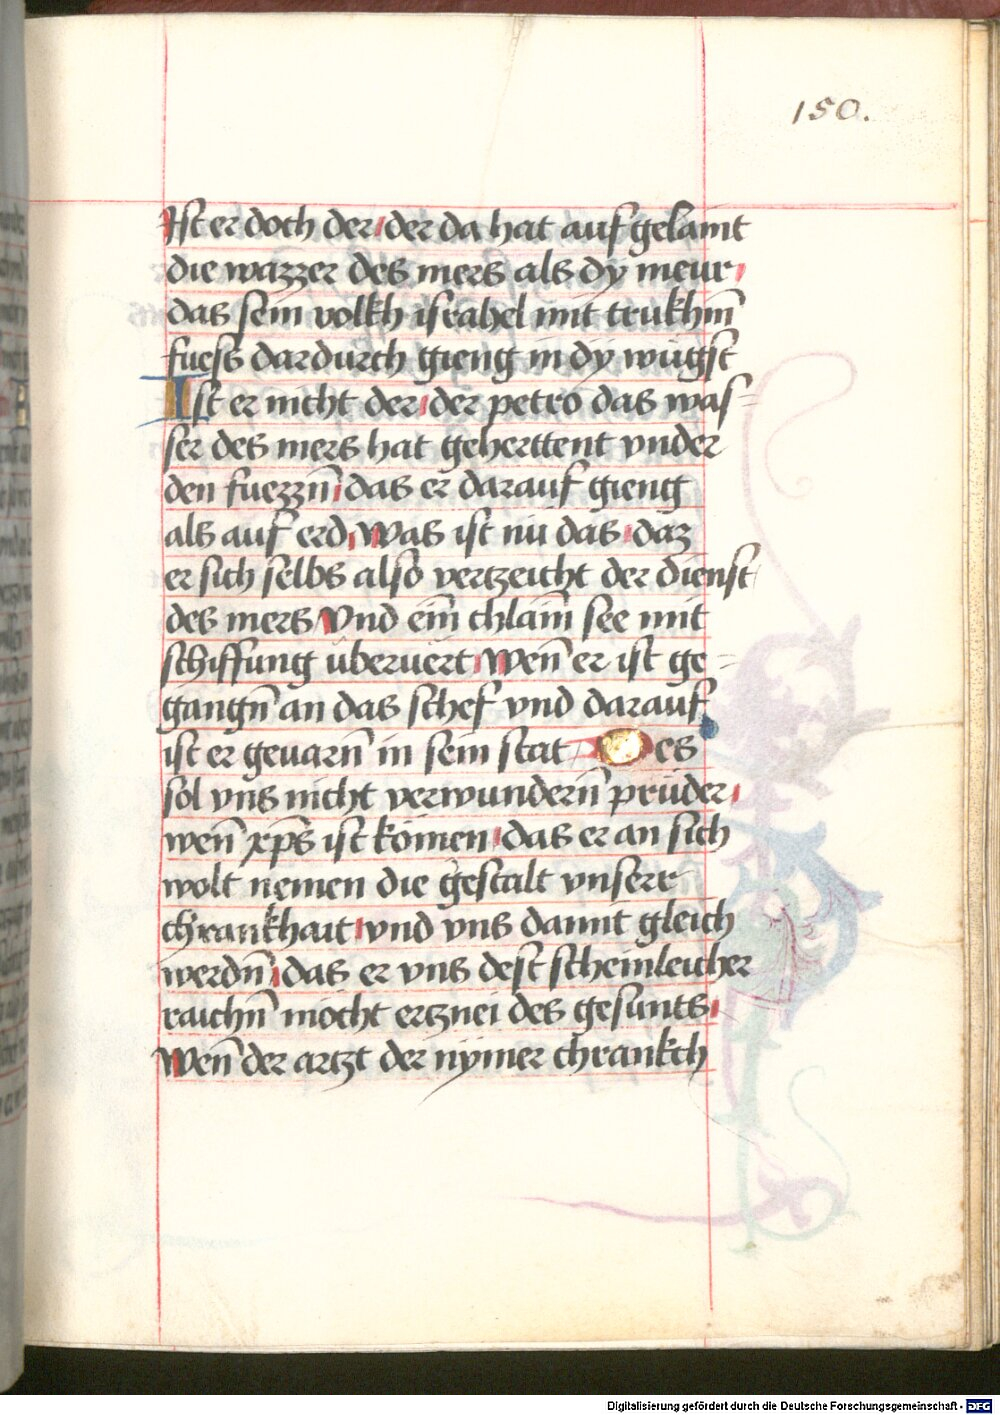 150.
Ist er doch der der da hat auf gelaint
die wazzer des mers als dy meur
das sein volkh israhel mit trukhn̄
fuess dardurch gieng in dy wůgst
Ist er nicht der der petro das was-
ser des mers hat geherttent vnder
den fuezzn̄ das er darauf gieng
als auf erd Was ist nu das daz
er sich selbs also vertzeicht der dienst
des mers Vnd ein̄ chlain̄ see mit
schiffung überuert Wen̄ er ist ge-
gangn̄ an das schef vnd darauf
ist er geuarn̄ in sein stat Des
sol vns nicht verwundern̄ prüder
wen̄ xp̄s ist kömen das er an sich
wolt nemen die gestalt vnsere
chrankhait vnd vns damit gleich
werdn̄ das er vns dest scheinleicher
raichn̄ möcht ertznei des gesunts
Wen̄ der artzt der nÿmer chrankch
Digitalisierung gefördert durch die Deutsche Forschungsgemeinschaft - DFG